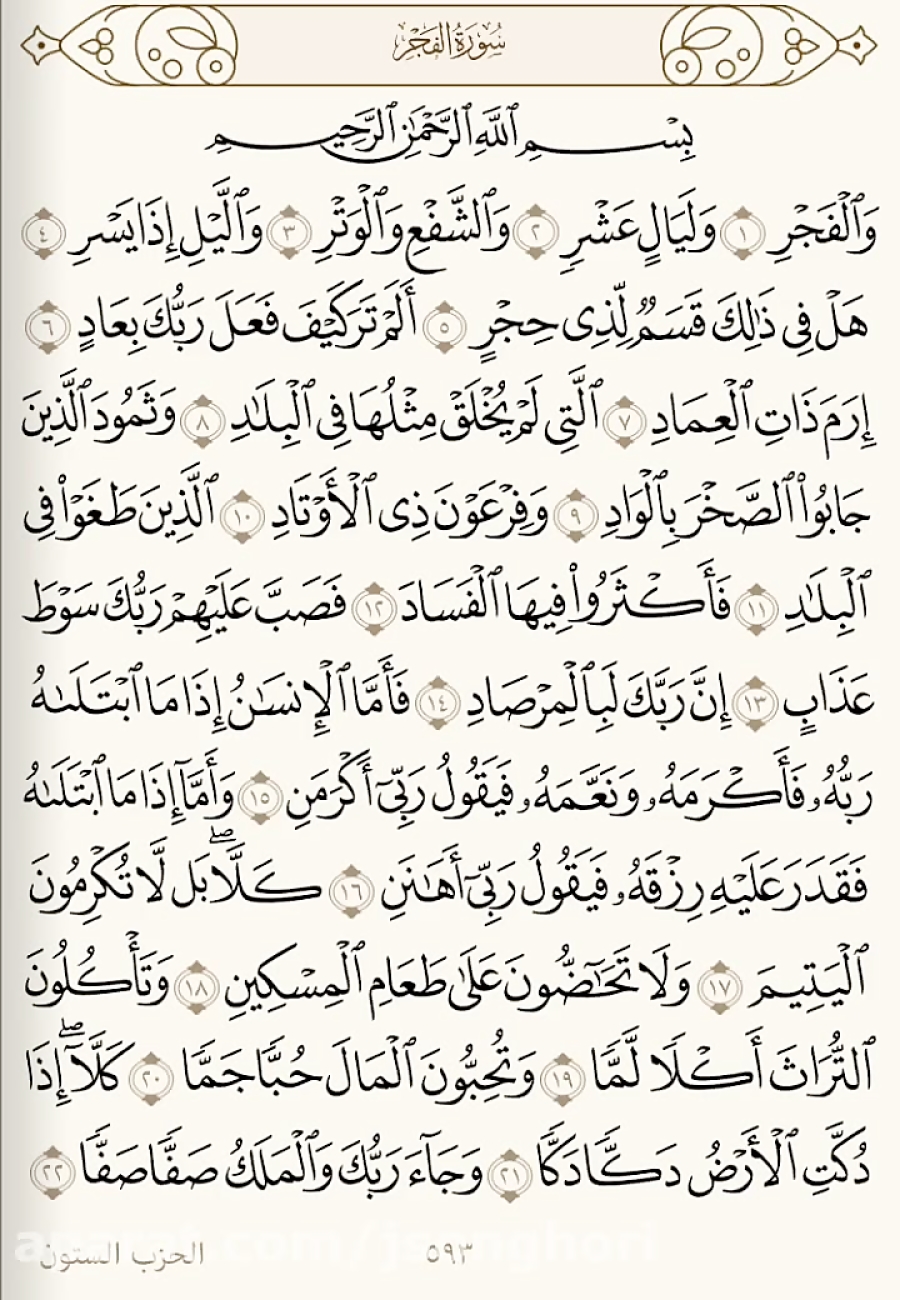 سُورَةُ الفَجْرِ
بِسْمِ ٱللَّهِ ٱلرَّحْمَٰنِ ٱلرَّحِيمِ
وَٱلْفَجْرِ ١ وَلَيَالٍ عَشْرٍ ٢ وَٱلشَّفْعِ وَٱلْوَتْرِ ٣ وَٱلَّيْلِ إِذَا يَسْرِ ٤
هَلْ فِى ذَٰلِكَ قَسَمٌ لِّذِى حِجْرٍ ٥ أَلَمْ تَرَ كَيْفَ فَعَلَ رَبُّكَ بِعَادٍ ٦
إِرَمَ ذَاتِ ٱلْعِمَادِ ٧ ٱلَّتِى لَمْ يُخْلَقْ مِثْلُهَا فِى ٱلْبِلَٰدِ ٨ وَثَمُودَ ٱلَّذِينَ
جَابُوا۟ ٱلصَّخْرَ بِٱلْوَادِ ٩ وَفِرْعَوْنَ ذِى ٱلْأَوْتَادِ ١٠ ٱلَّذِينَ طَغَوْا۟ فِى
ٱلْبِلَٰدِ ١١ فَأَكْثَرُوا۟ فِيهَا ٱلْفَسَادَ ١٢ فَصَبَّ عَلَيْهِمْ رَبُّكَ سَوْطَ
عَذَابٍ ١٣ إِنَّ رَبَّكَ لَبِٱلْمِرْصَادِ ١٤ فَأَمَّا ٱلْإِنسَٰنُ إِذَا مَا ٱبْتَلَىٰهُ
رَبُّهُۥ فَأَكْرَمَهُۥ وَنَعَّمَهُۥ فَيَقُولُ رَبِّىٓ أَكْرَمَنِ ١٥ وَأَمَّآ إِذَا مَا ٱبْتَلَىٰهُ
فَقَدَرَ عَلَيْهِ رِزْقَهُۥ فَيَقُولُ رَبِّىٓ أَهَٰنَنِ ١٦ كَلَّا ۖ بَل لَّا تُكْرِمُونَ
ٱلْيَتِيمَ ١٧ وَلَا تَحَٰٓضُّونَ عَلَىٰ طَعَامِ ٱلْمِسْكِينِ ١٨ وَتَأْكُلُونَ
ٱلتُّرَاثَ أَكْلًا لَّمًّا ١٩ وَتُحِبُّونَ ٱلْمَالَ حُبًّا جَمًّا ٢٠ كَلَّآ ۖ إِذَا
دُكَّتِ ٱلْأَرْضُ دَكًّا دَكًّا ٢١ وَجَآءَ رَبُّكَ وَٱلْمَلَكُ صَفًّا صَفًّا ٢٢
٥٩٣ الحزب الستون